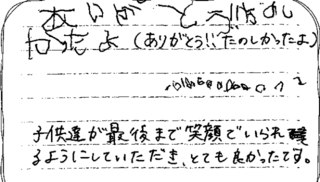 ありがとうたのし
かったよ(ありがとう!!たのしかったよ)
子供達が最後まで笑顔でいられ
るようにしていただき、とても良かったです。